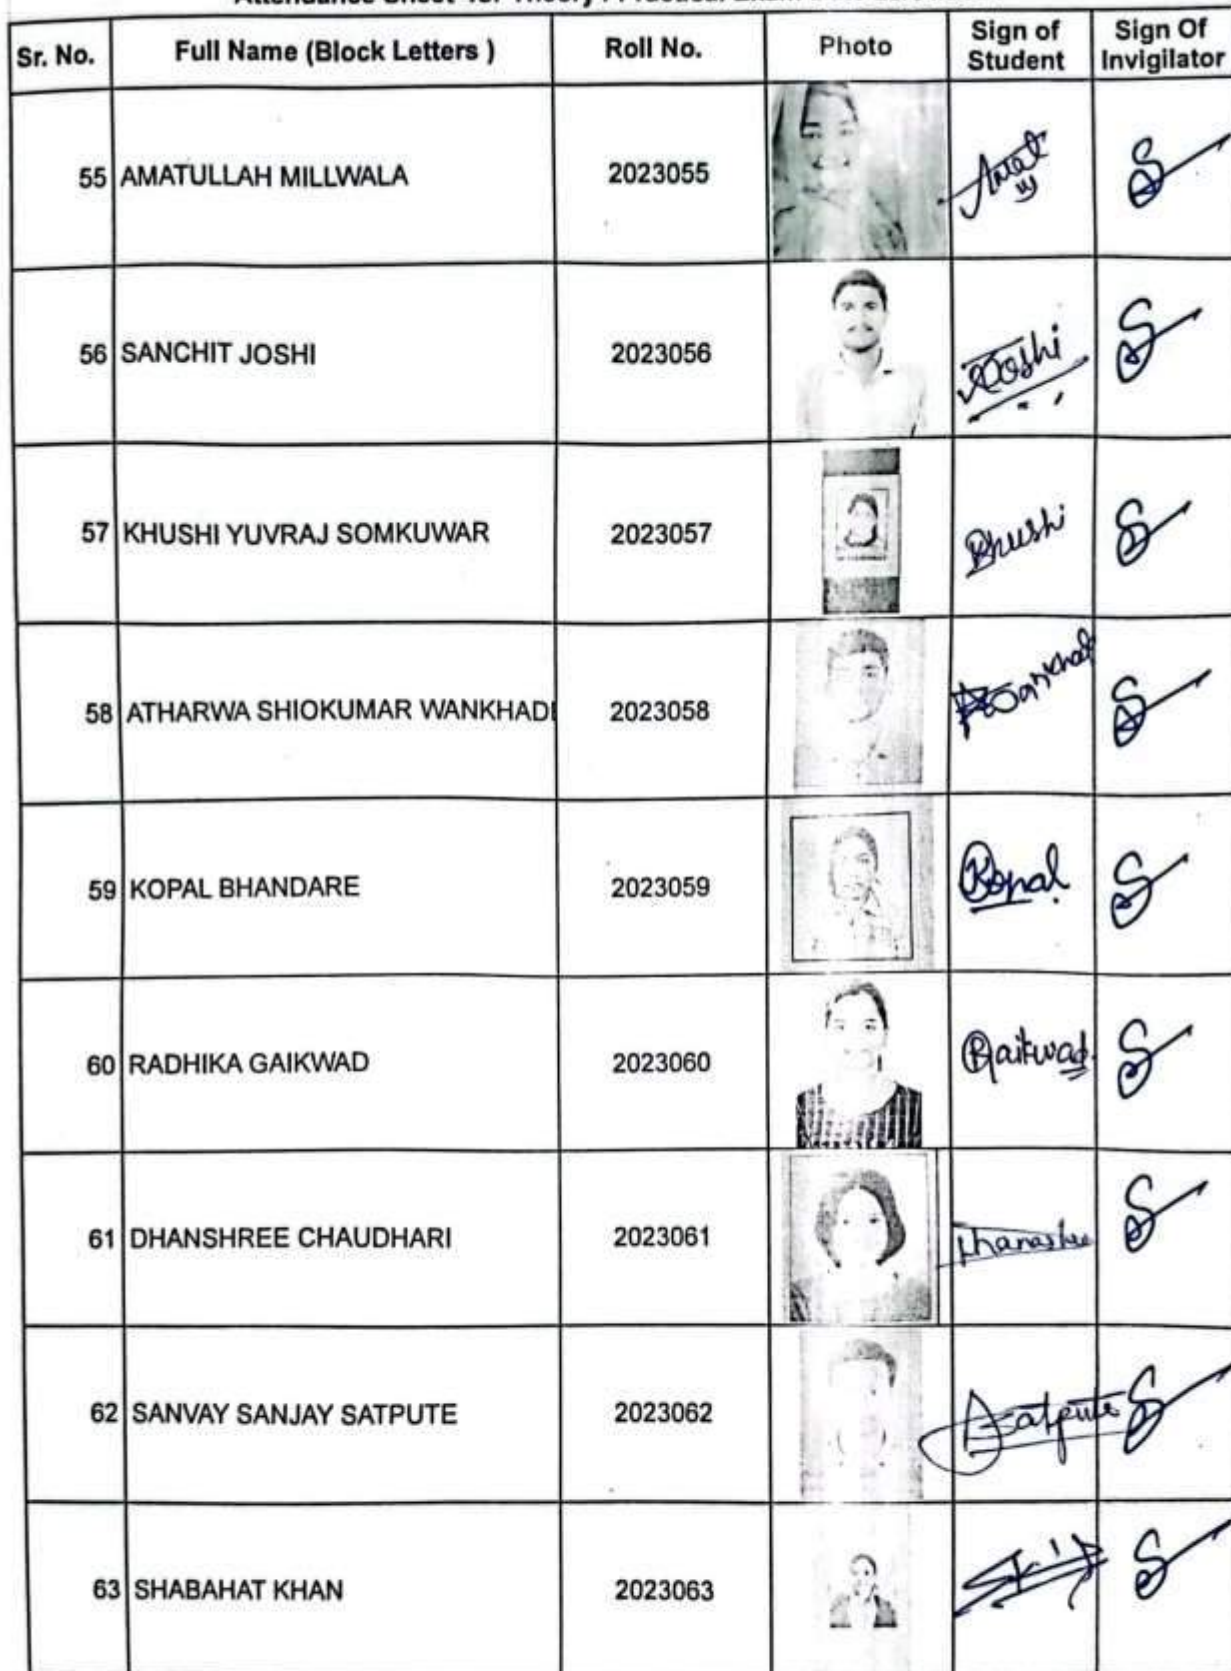 Sr. No. Full Name (Block Letters ) Roll No. Photo Sign of Student Sign Of Invigilator
55 AMATULLAH MILLWALA 2023055
56 SANCHIT JOSHI 2023056 Joshi
57 KHUSHI YUVRAJ SOMKUWAR 2023057 Khushi
58 ATHARWA SHIOKUMAR WANKHAD 2023058
59 KOPAL BHANDARE 2023059 Kopal
60 RADHIKA GAIKWAD 2023060 Gaikwad
61 DHANSHREE CHAUDHARI 2023061
62 SANVAY SANJAY SATPUTE 2023062 Satpute
63 SHABAHAT KHAN 2023063